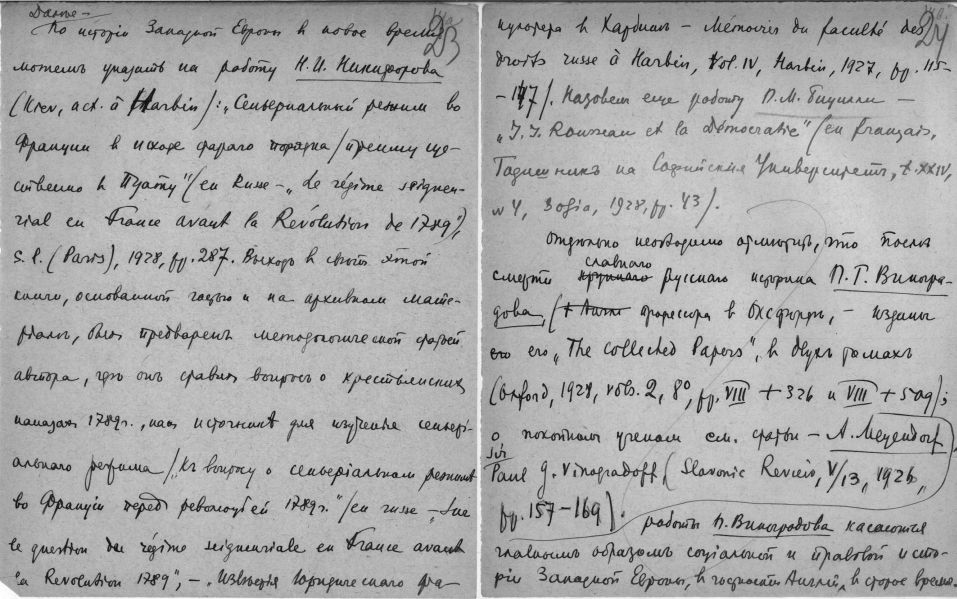 Далѣе –
23
По исторіи Западной Европы въ новое время
можемъ указать на работу Н.И. Никифорова
(Kiev, act. à Harbin): „Сеньеріальный режим во
Франціи в исходе стараго порядка (преимуще-
ственно в Пуату)" (en Russe – „Le régime seigneu-
rial en France avant la Révolution de 1789"),
S.l. (Paris), 1928, pp. 287. Выходъ в свѣт этой
книги, основанной частью и на архивном мате-
ріалѣ, былъ предваренъ методологической статьей
автора, гдѣ онъ ставилъ вопросъ о крестьянских
наказах 1789г., как источникѣ для изученія сеньері-
альнаго режима /„Къ вопросу о сеньеріальном режимѣ
во Франціи передъ революціей 1789г."/ en russe – „Sur
la question du régime seigneuriale en France avant
la Révolution 1789", – „Извѣстія Юридическаго фа-
24
культета в Харбинѣ – Mémoires du faculté des
droits russe à Harbin, vol. IV, Harbin, 1927, pp. 115-
-147/. Назовем еще работу П.М. Бицилли –
„J. J. Rousseau et la démocratie" (en français,
Годишникъ на Софийския Университетъ, t. XXIV,
N 4, Sofia, 1928, pp. 43).
Отдѣльно необходимо отмѣтить, что послѣ
славнаго
смерти крупнаго русскаго историка П.Г. Виногра-
дова, профессора в Оксфордѣ, – изданы
его „The Collected Papers", в двухъ томахъ
(Oxford, 1928, vols. 2, 8°, pp. VIII + 326 и VIII + 509);
о покойном ученом см. статьи – A. Meyendorf,
Sir
Paul G. Vinogradoff, (Slavonic Review, V/13, 1926,
pp. 157–169). Работы П. Виноградова касаются
главнымъ образомъ соціальной и правовой исто-
ріи Западной Европы, в частности Англіи, в старое время.